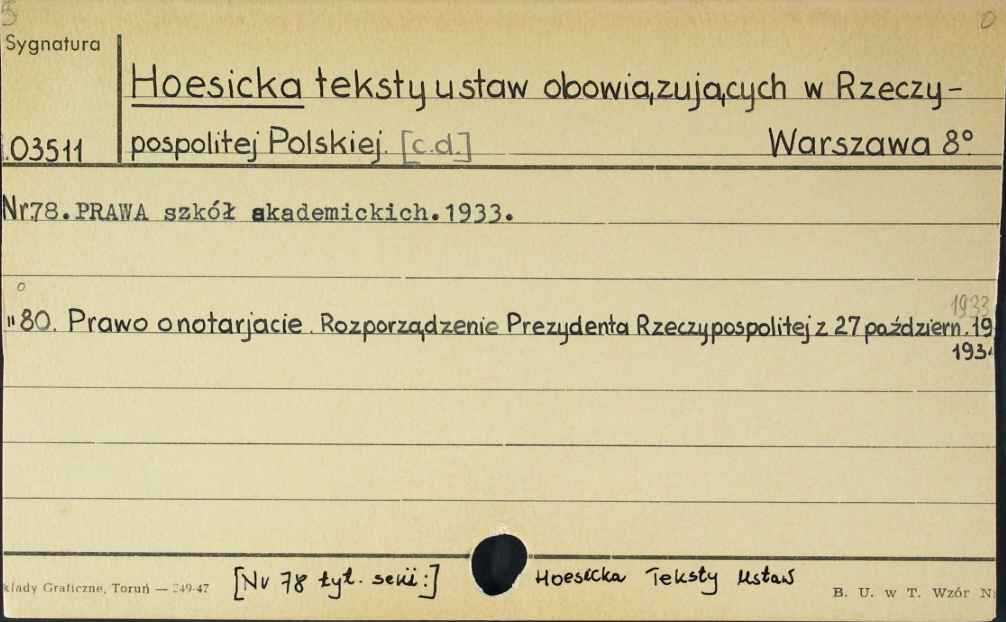 5
0
Sygnatura
Hoesicka teksty ustaw obowiązujących w Rzeczy-
03511 pospolitej Polskiej. [c.d.] Warszawa 8°
Nr.78. PRAWA szkół akademickich. 1933.
0
1933
"80. Prawo o notarjacie. Rozporządzenie Prezydenta Rzeczypospolitej z 27 październ. 19
193
[Nr 78 tyt. serii:] Hoesicka Teksty Ustaw
kłady Graficzne, Toruń — 49-47
B. U. w T. Wzór N